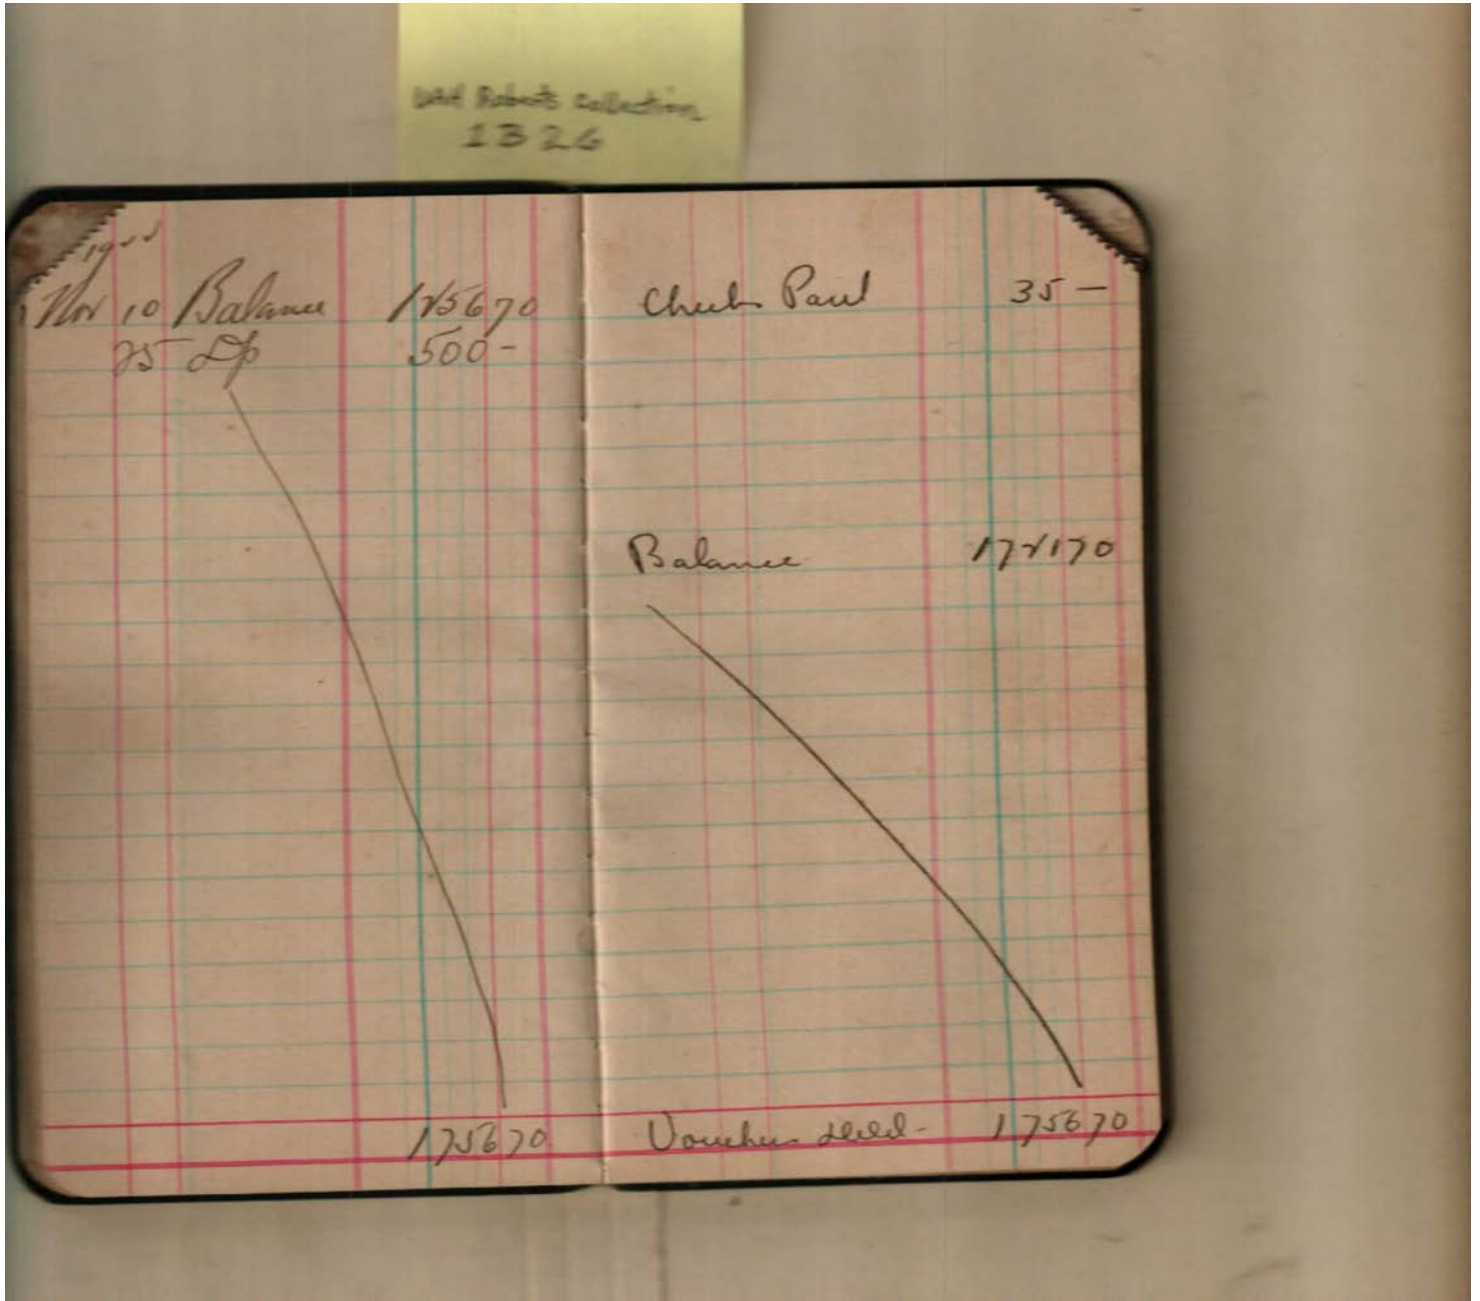 UAH Roberts collection
1B26
1922
Nov 10 Balance 125670
25 Dp 500-
1756 70
Checks Paid 35 —
Balance 172170
Vouchers deld- 175670